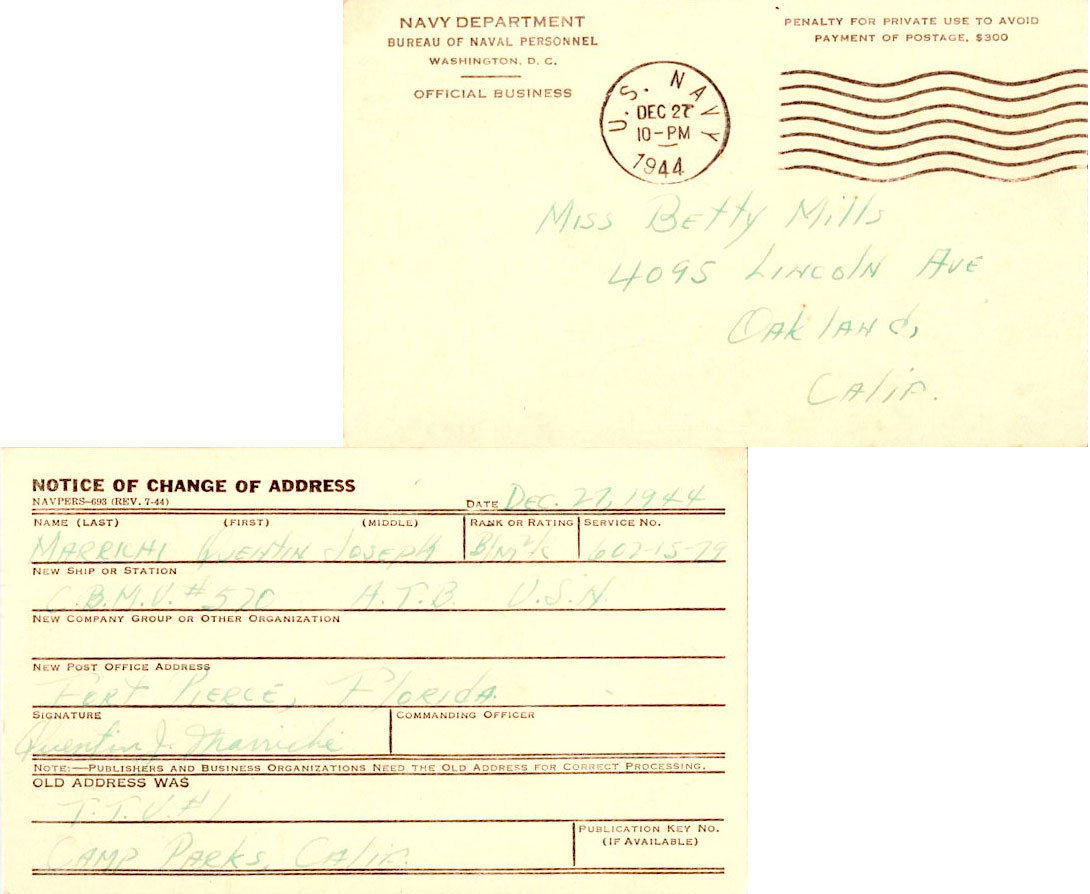 NAVY DEPARTMENT
BUREAU OF NAVAL PERSONNEL
WASHINGTON, D. C.
OFFICIAL BUSINESS
PENALTY FOR PRIVATE USE TO AVOID
PAYMENT OF POSTAGE, $300
U.S. NAVY
DEC 27
10-PM
1944
Miss Betty Mills
4095 Lincoln Ave
Oakland,
Calif.
NOTICE OF CHANGE OF ADDRESS
NAVPERS-693 (REV. 7-44)
DATE DEC. 27, 1944
NAME (LAST) (FIRST) (MIDDLE) RANK OR RATING SERVICE No.
MARRICHI QUENTIN JOSEPH 602-15-79
NEW SHIP OR STATION
C.B.M.U. #570 A.T.B. U.S.N.
NEW COMPANY GROUP OR OTHER ORGANIZATION
NEW POST OFFICE ADDRESS
FORT PIERCE, FLORIDA
SIGNATURE COMMANDING OFFICER
Quentin J. Marrichi
NOTE:—PUBLISHERS AND BUSINESS ORGANIZATIONS NEED THE OLD ADDRESS FOR CORRECT PROCESSING.
OLD ADDRESS WAS
T.T.U. #1
PUBLICATION KEY No.
(IF AVAILABLE)
CAMP PARKS, CALIF.